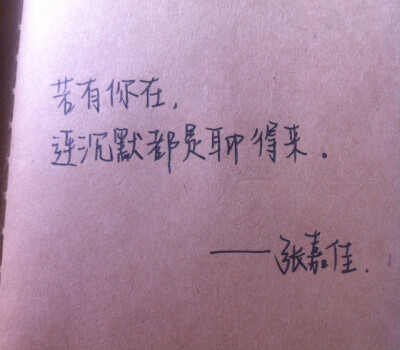 若有你在，
连沉默都是聊得来。
——张嘉佳.